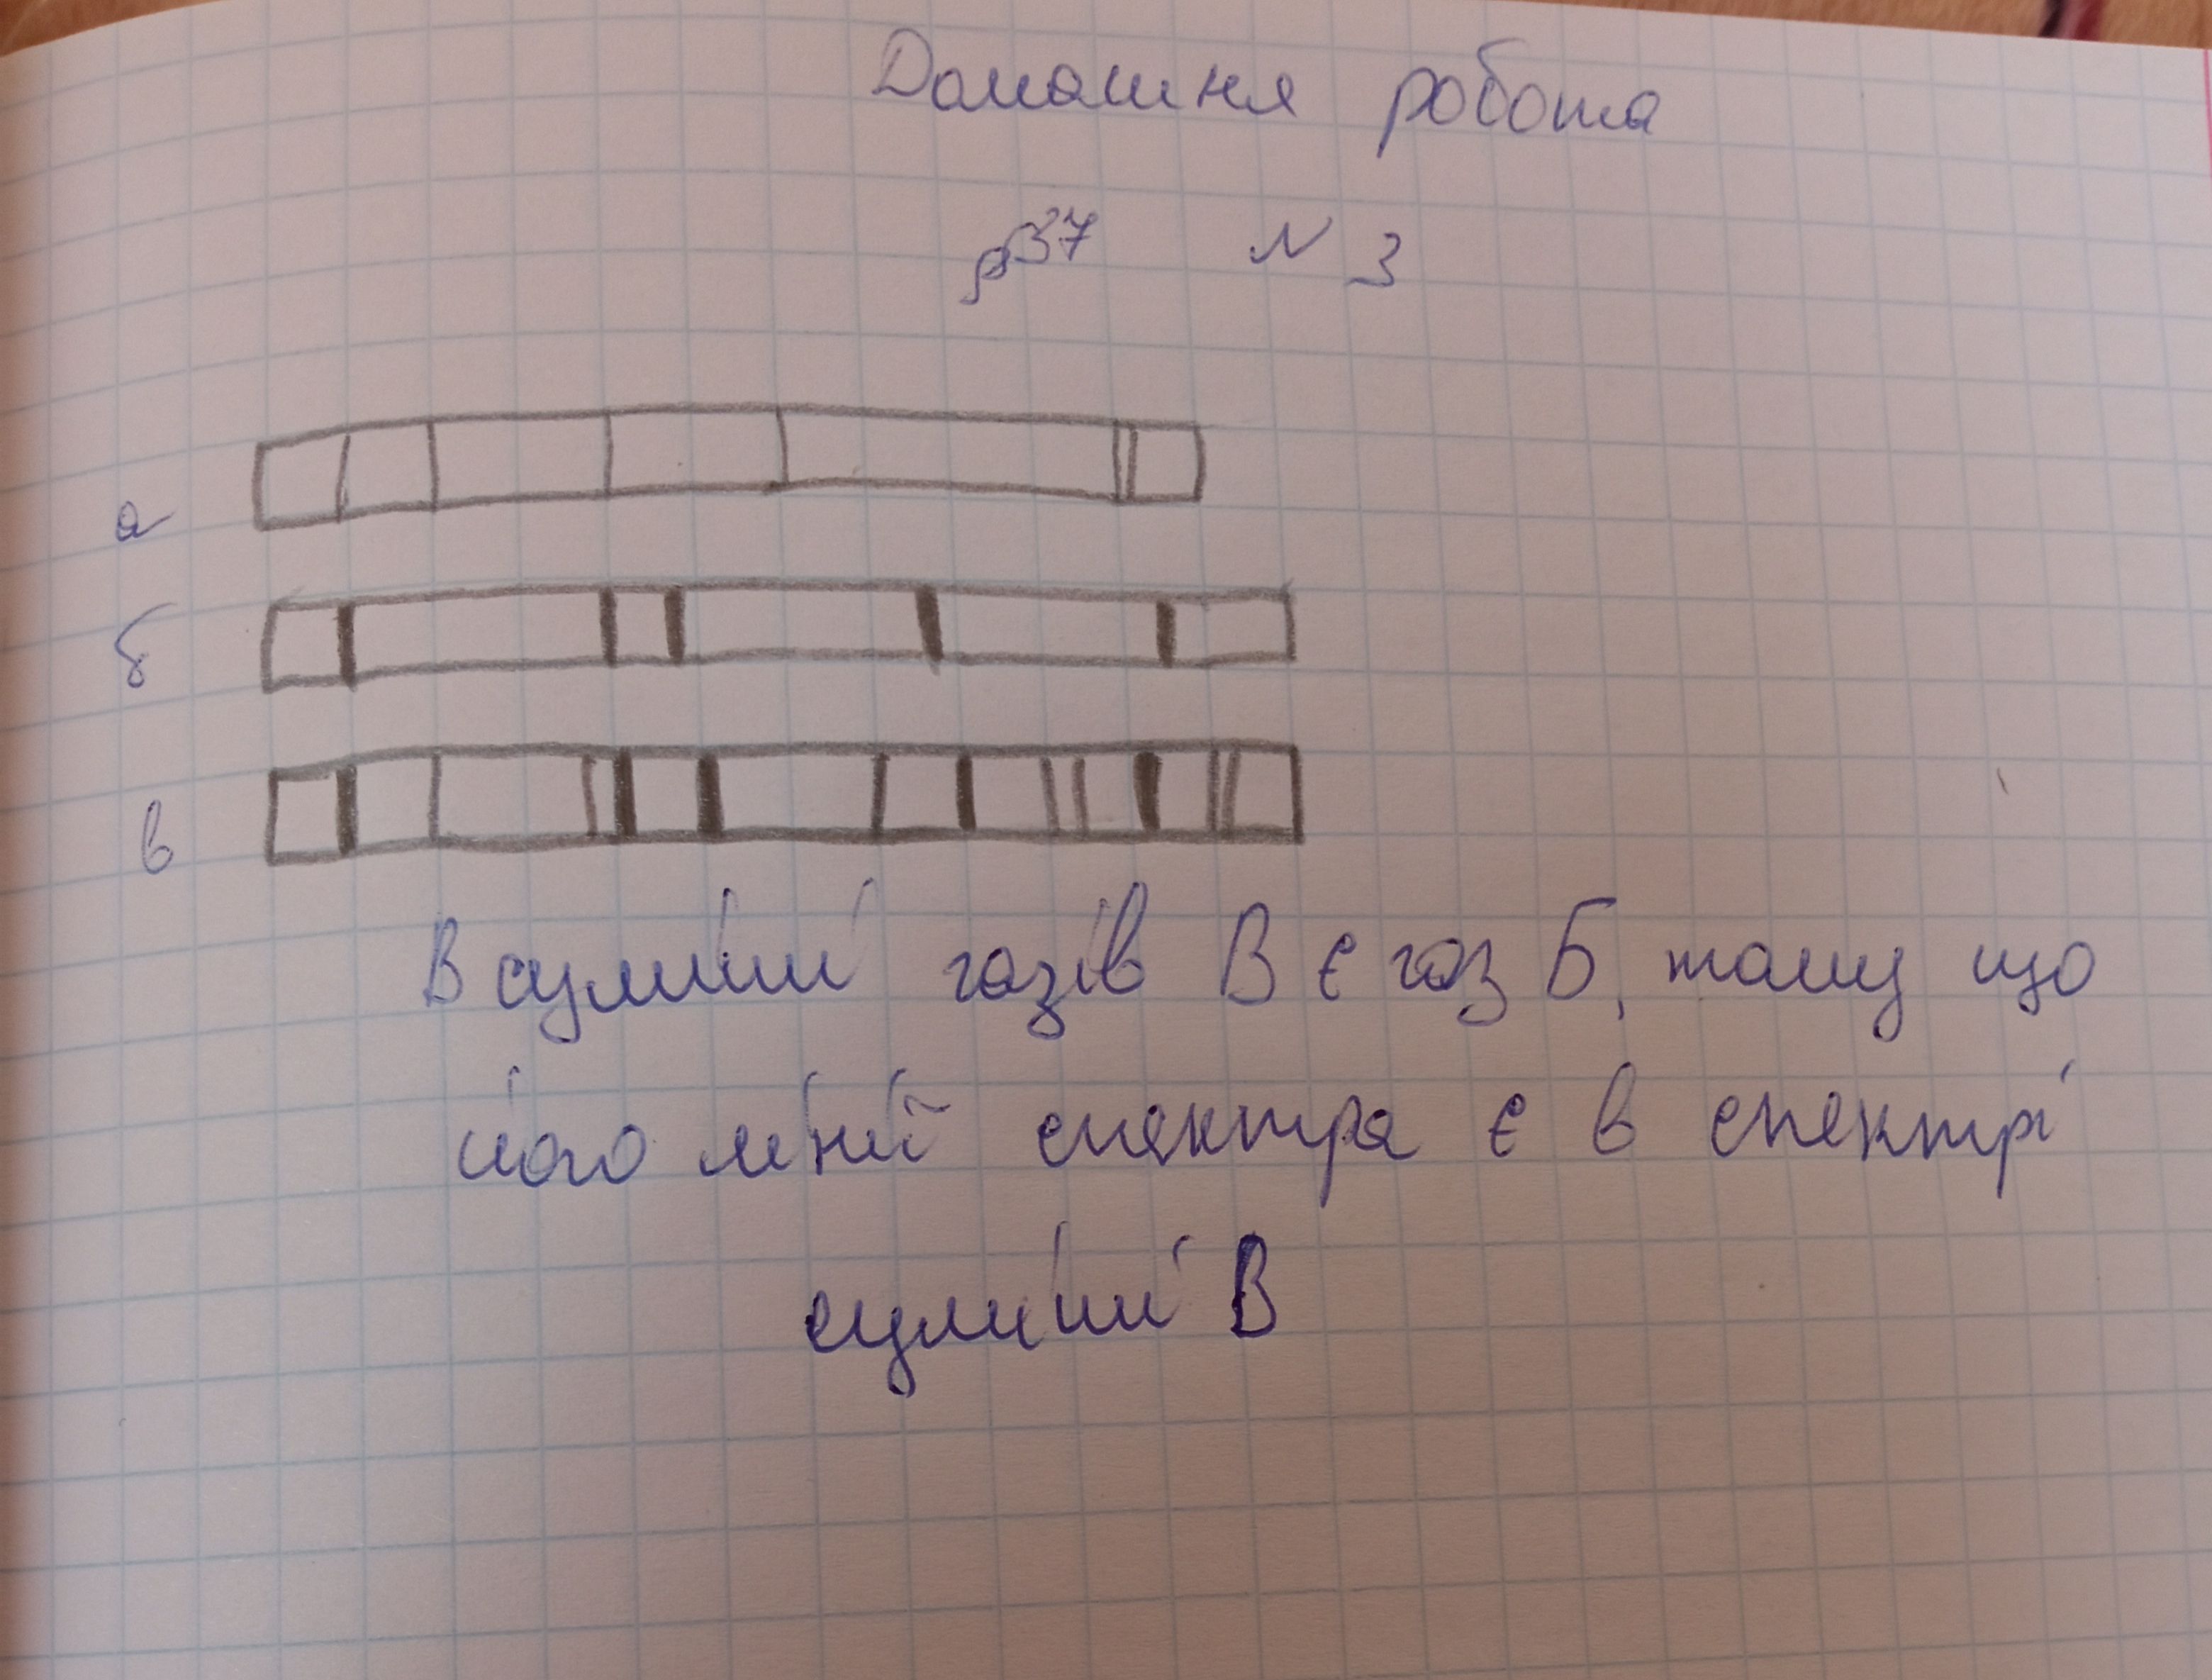 Домашня робота
§37 N 3
а
б
в
В суміші газів В є газ Б, тому що
його лінії спектра є в спектрі
суміші В